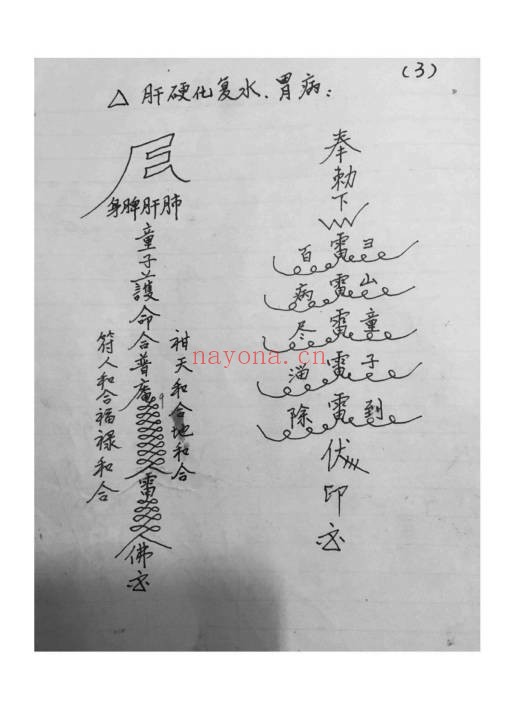 (3)
△ 肝硬化复水、胃病：
身脾肝肺
童子護命合普庵
雷
佛
符人和合福禄和合
祖天和合地和合
奉勅下
百雷彐
病雷山
尽雷童
溜雷子
除雷到
伏
印
nayona.cn